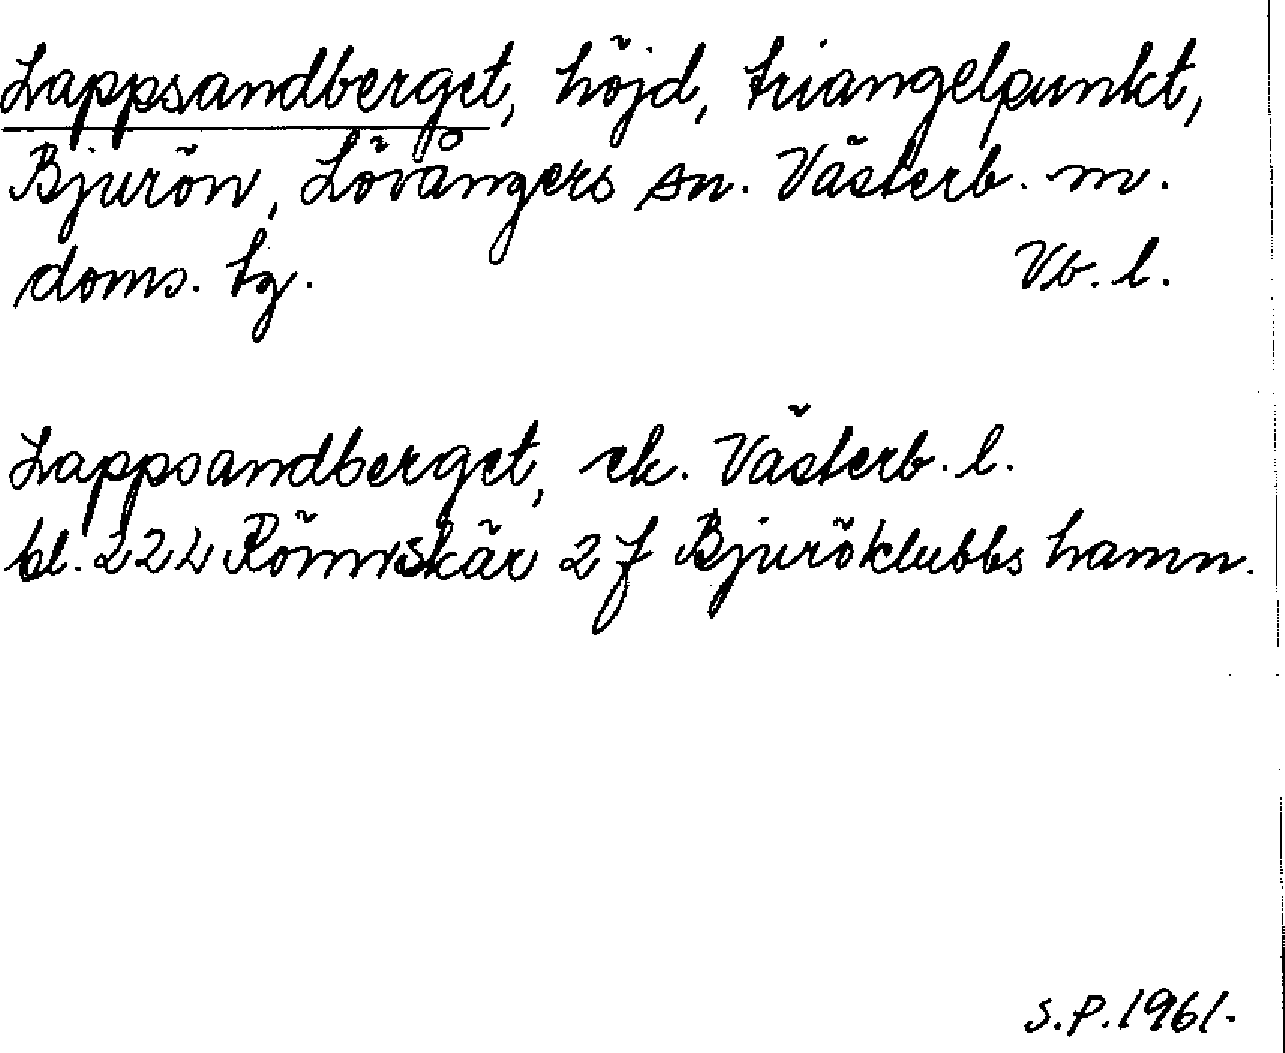 Lappsandberget, höjd, triangelpunkt,
Bjurön, Lövångers sn. Västerb. m.
doms. tg. Vb. l.
Lappsandberget, ek. Västerb. l.
bl. 22L Rönnskär 2 f Bjuröklubbs hamn.
S.P. 1961.